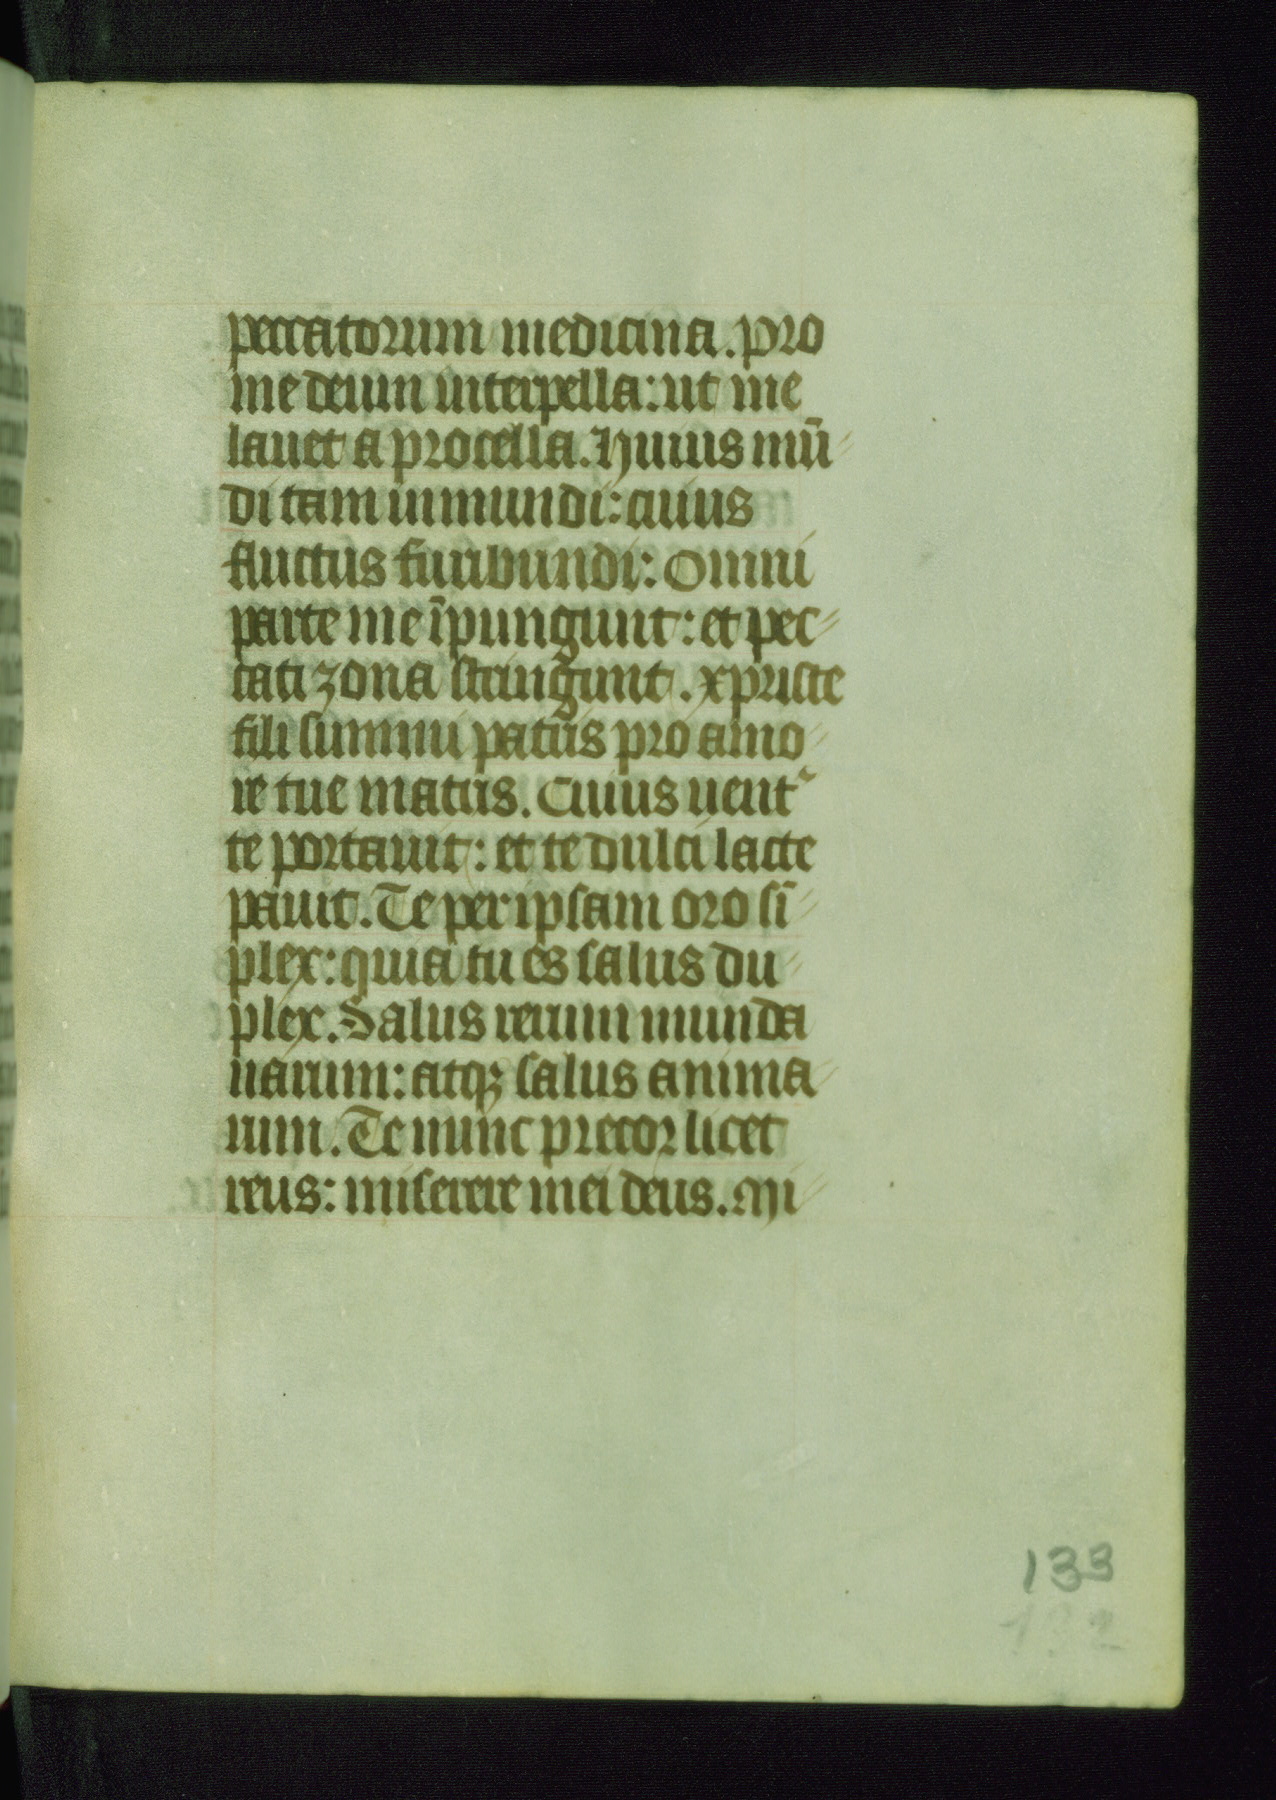 peccatorum medicina. Pro
me deum interpella: ut me
lauet a procella. Huius mū
di tam inmundi: cuius
fluctus furibundi: Omni
parte me īpungunt: et pec
cati zona stringunt. Xpriste
fili summi patris pro amo
re tue matris. Cuius uent᷑
te portauit: et te dulci lacte
pauit. Te per ipsam oro sī
plex: quia tu es salus du
plex. Salus rerum munda
narum: atqꝫ salus anima
rum. Te nunc precor licet
reus: miserere mei deus. Mi
133
132